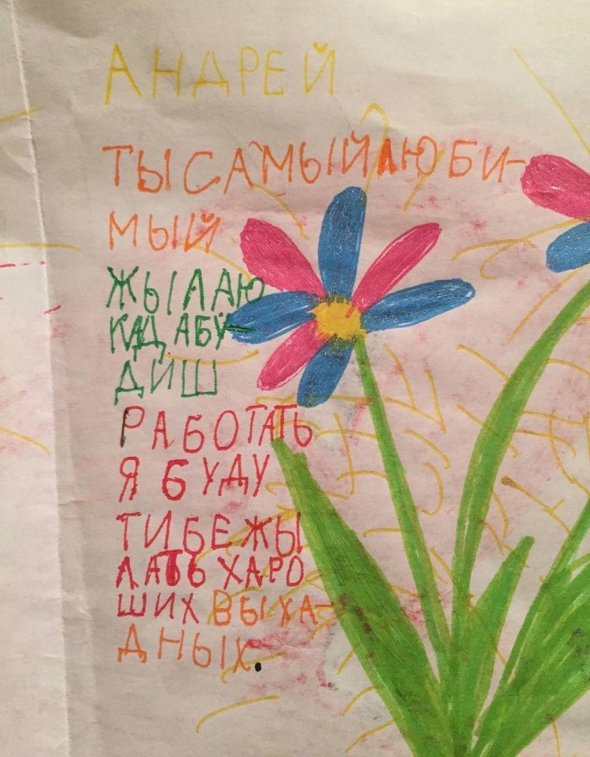 АНДРЕЙ
ТЫ САМЫЙ ЛЮБИ-
МЫЙ
ЖЫЛАЮ
КАДА БУ-
ДИШ
РАБОТАТЬ
Я БУДУ
ТИБЕ ЖЫ
ЛАТЬ ХАРО
ШИХ ВЫХА-
ДНЫХ.